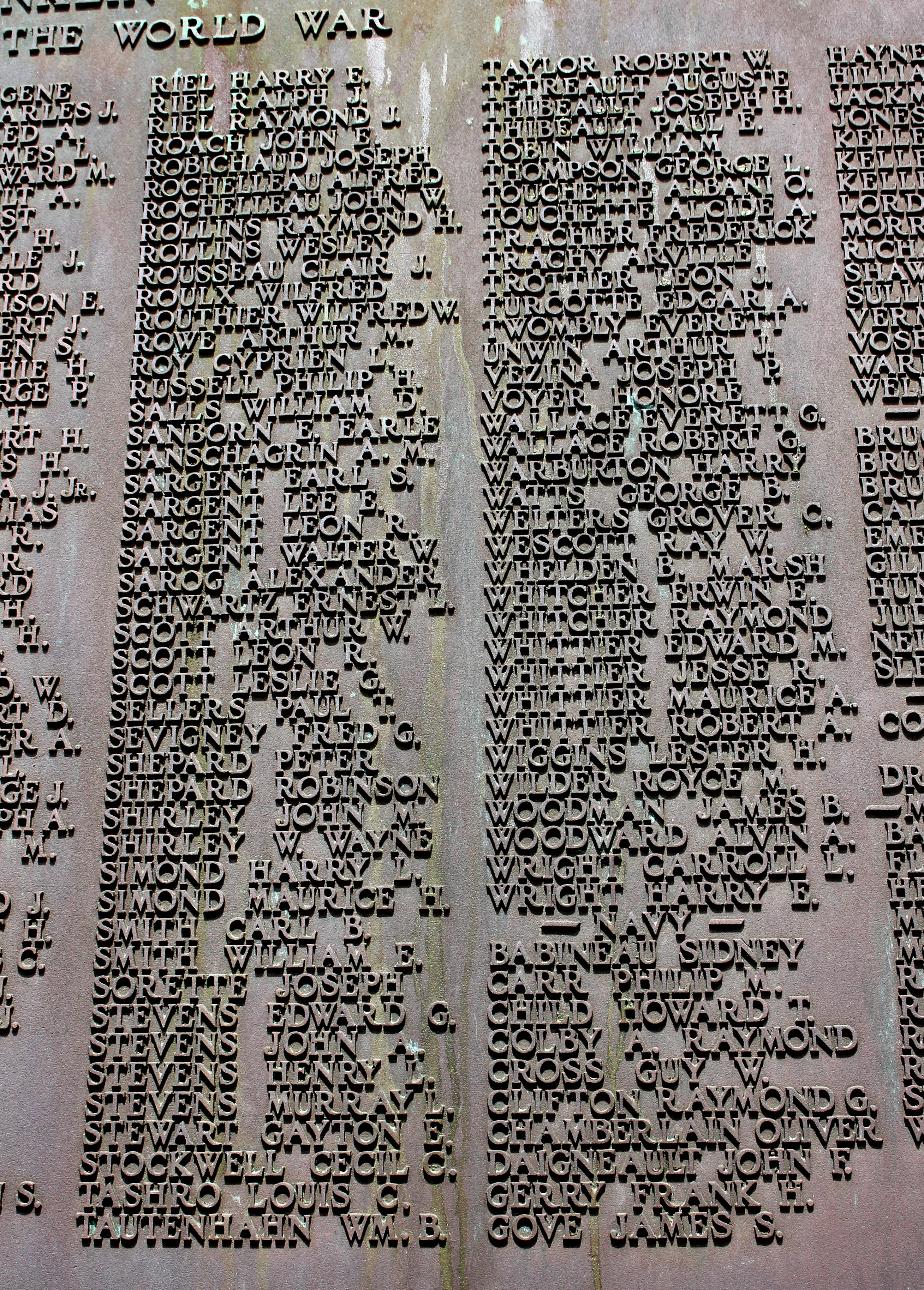 THE WORLD WAR
GENE
RLES J.
ED A.
MES L.
WARD M.
T A.
ST
Y H.
LE J.
RD
ISON E.
ERT J.
EN S.
HIE H.
RGE P.
RT H.
S H.
A. J. JR.
IAS
R.
R.
D
H.
H.
O. W.
RT D.
ER A.
GE J.
PH A.
M.
D J.
H.
C.
J.
S.
RIEL HARRY E.
RIEL RALPH J.
RIEL RAYMOND J.
ROACH JOHN B.
ROBICHAUD JOSEPH
ROCHELLEAU ALFRED
ROCHELLEAU JOHN W.
ROLLINS RAYMOND H.
ROLLINS WESLEY
ROUSSEAU CLAIR J.
ROULX WILFRED
ROUTHIER WILFRED W.
ROWE ARTHUR M.
ROY CYPRIEN L.
RUSSELL PHILIP H.
SALLS WILLIAM D.
SANBORN E. EARLE
SANSCHAGRIN A. M.
SARGENT EARL S.
SARGENT LEE E.
SARGENT LEON R.
SARGENT WALTER W.
SAROG ALEXANDER
SCHWARTZ ERNEST L.
SCOTT ARTHUR W.
SCOTT LEON R.
SCOTT LESLIE G.
SELLERS PAUL T.
SEVIGNEY FRED G.
SHEPARD PETER
SHEPARD ROBINSON
SHIRLEY JOHN M.
SHIRLEY W. WAYNE
SIMOND HARRY L.
SIMOND MAURICE H.
SMITH CARL B.
SMITH WILLIAM E.
SORETTE JOSEPH
STEVENS EDWARD G.
STEVENS JOHN A.
STEVENS HENRY L.
STEVENS MURRAY L.
STEWART GAYTON E.
STOCKWELL CECIL C.
TASHRO LOUIS C.
TAUTENHAHN WM. B.
TAYLOR ROBERT W.
TETREAULT AUGUSTE
THIBEAULT JOSEPH H.
THIBEAULT PAUL E.
TOBIN WILLIAM
THOMPSON GEORGE L.
TOUCHETTE ALBANI O.
TOUCHETTE ALCIDE A.
TRACHIER FREDERICK
TRACHY ARVILLE
TROTTIER LEON J.
TURCOTTE EDGAR A.
TWOMBLY EVERETT
UNWIN ARTHUR J.
VEZINA JOSEPH P.
VOYER HONORE
WALLACE EVERETT G.
WALLACE ROBERT G.
WARBURTON HARRY
WATTS GEORGE B.
WELTERS GROVER C.
WESCOTT RAY W.
WHELDEN B. MARSH
WHITCHER ERWIN F.
WHITCHER RAYMOND
WHITTIER EDWARD M.
WHITTIER JESSE R.
WHITTIER MAURICE A.
WHITTIER ROBERT A.
WIGGINS LESTER H.
WILDER ROYCE M.
WOODMAN JAMES B.
WOODWARD ALVIN A.
WRIGHT CARROLL L.
WRIGHT HARRY E.
— NAVY —
BABINEAU SIDNEY
CARR PHILIP M.
CHILD HOWARD T.
COLBY A. RAYMOND
CROSS GUY W.
CLIFTON RAYMOND G.
CHAMBERLAIN OLIVER
DAIGNEAULT JOHN F.
GERRY FRANK H.
GOVE JAMES S.
HAYN
HILL
JACK
JONES
KELL
KELL
KELL
LORD
MOR
RICH
SHAW
SULL
VERI
VOSE
WARD
WELL
—
BRU
BRU
BRU
CALL
EMI
GIL
HUN
JUN
NEL
SLE
CO
DR
—